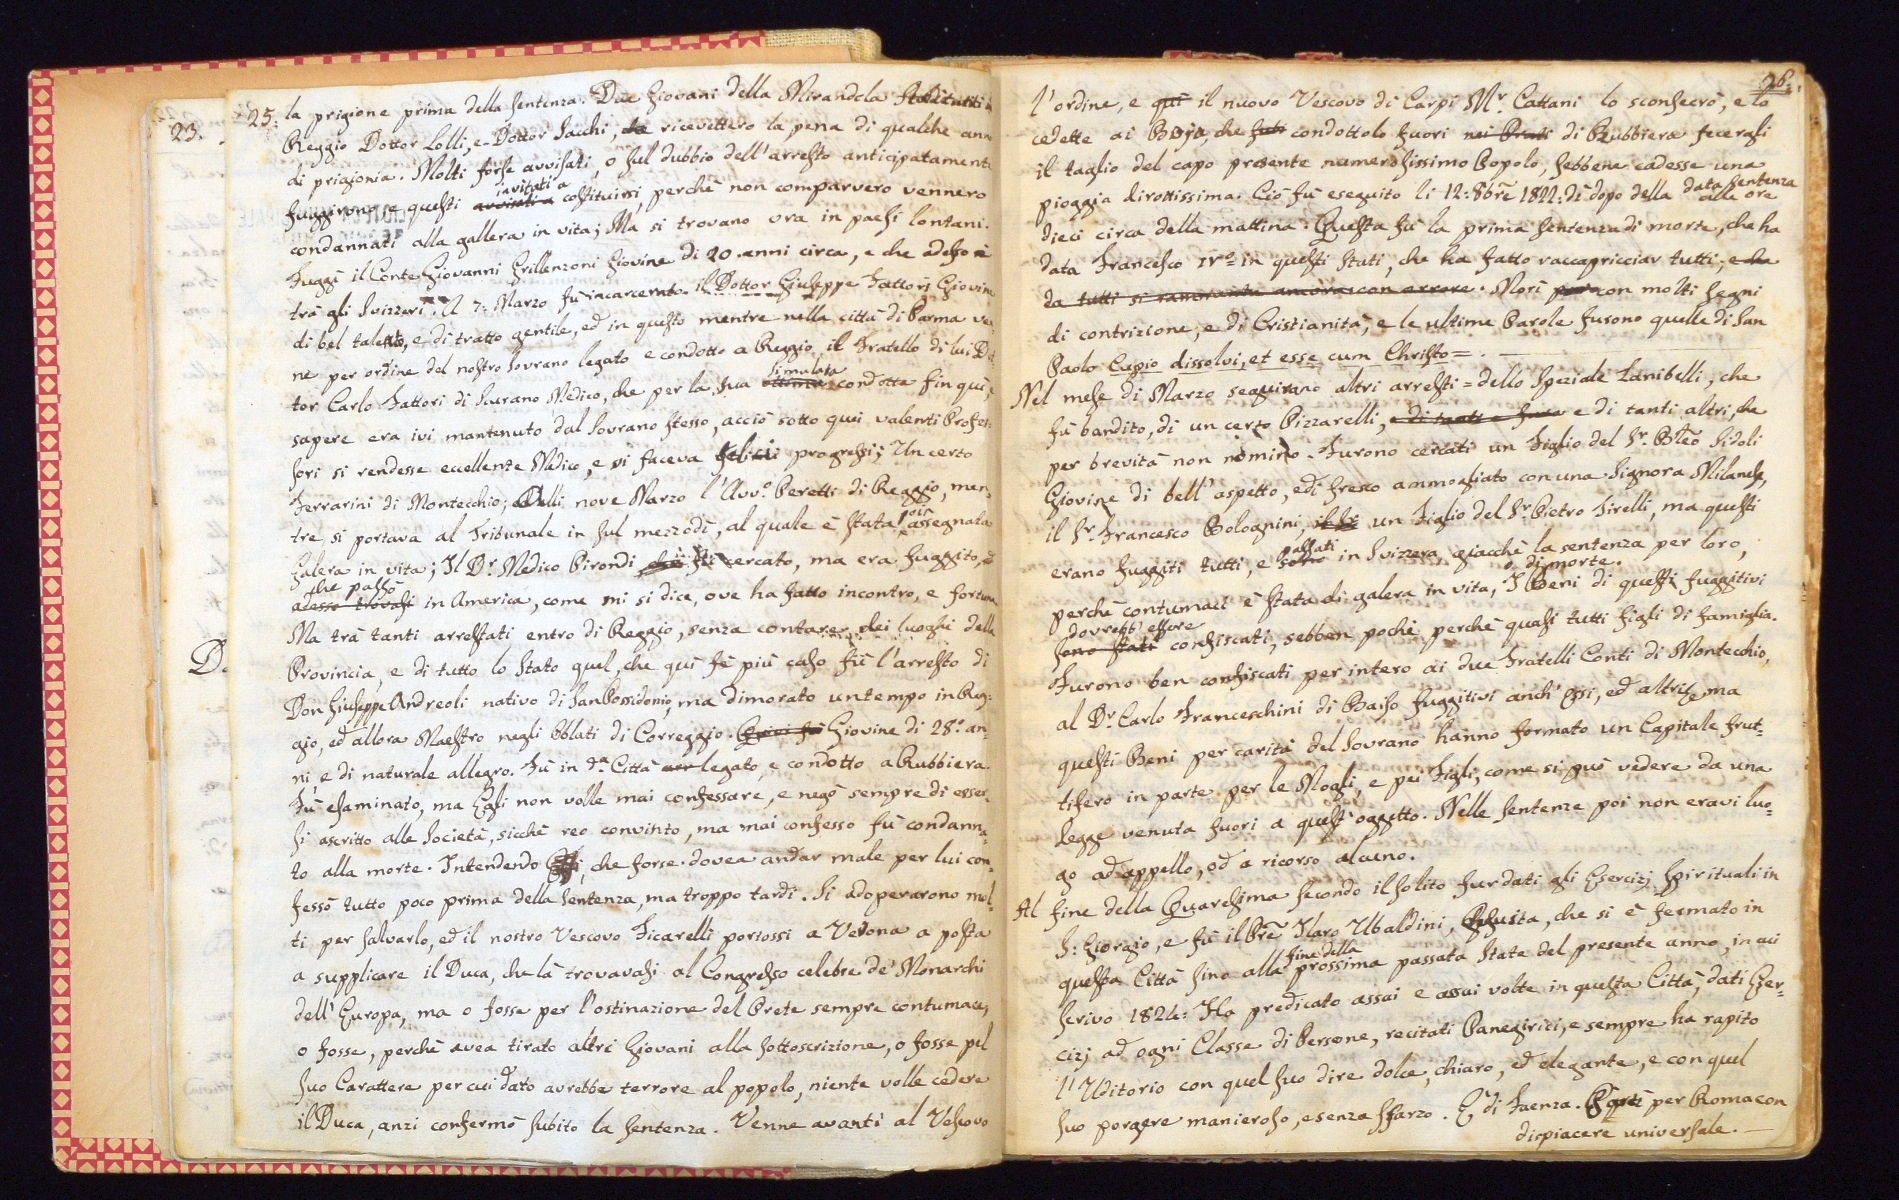 23.
25.
la prigione prima della sentenza. Due Giovani della Mirandola
Reggio Dottor Lolli, e Dottor Sacchi, ricevettero la pena di qualche ann
di prigionia. Molti forse avvisati, o sul dubbio dell'arresto anticipatament
fuggirono e questi invitati a costituirsi perchè non comparvero vennero
condannati alla gallera in vita; Ma si trovano ora in paesi lontani.
Fuggì il Conte Giovanni Grillenzoni Giovine di 20 anni circa, e che adesso è
trà gli Svizzeri. Il 7: Marzo fu incarcerato il Dottor Giuseppe Fattori Giovine
di bel talento, e di tratto gentile, ed in questo mentre nella città di Parma ven
ne per ordine del nostro Sovrano legato e condotto a Reggio il Fratello di lui Dot
tor Carlo Fattori di Sovrano Medico, che per la sua simulata condotta fin qui, e
sapere era ivi mantenuto dal Sovrano stesso, acciò sotto quei valenti Profes=
sori si rendesse eccellente Medico, e vi faceva felici progressi; Un certo
Ferrarini di Montecchio; Alli nove Marzo l'Avv.º Peretti di Reggio, men=
tre si portava al Tribunale in sul mezzodì, al quale è stata poi assegnata
Galera in vita; Il D.r Medico Pirondi fù cercato, ma era fuggito, ed
che passò
adesso trovasi in America, come mi si dice, ove ha fatto incontro, e fortuna
Ma trà tanti arrestati entro di Reggio, senza contarer dei luoghi della
Provincia, e di tutto lo Stato quel, che quì fè più caso fù l'arresto di
Don Giuseppe Andreoli nativo di San Possidonio, ma dimorato un tempo in Reg=
gio, ed allora Maestro negli Oblati di Correggio. Giovine di 28.º an=
ni, e di naturale allegro. Fù in d.ª Città legato, e condotto a Rubbiera.
Fù esaminato, ma Egli non volle mai confessare, e negò sempre di esser=
si ascritto alle Società, sicchè reo convinto, ma mai confesso fù condanna=
to alla morte. Intendendo che forse dovea andar male per lui con=
fessò tutto poco prima della Sentenza, ma troppo tardi. Si adoperarono mol=
ti per salvarlo, ed il nostro Vescovo Ficarelli portossi a Verona a posta
a supplicare il Duca, che là trovavasi al Congresso celebre de' Monarchi
dell'Europa, ma o fosse per l'ostinazione del Prete sempre contumace,
o fosse, perchè avea tirato altri Giovani alla sottoscrizione, o fosse pel
suo Carattere per cui dato avrebbe terrore al popolo, niente volle cedere
il Duca, anzi confermò subito la sentenza. Venne avanti al Vescovo
26.
l'ordine, e quì il nuovo Vescovo di Carpi M.r Cattani lo sconsecrò, e lo
cedette ai Boja, che condottolo fuori nei Prati di Rubbiera fecergli
il taglio del capo presente numerosissimo Popolo, sebbene cadesse una
pioggia dirottissima. Ciò fù eseguito li 12: 8bre 1822: dì dopo della data sentenza
alle ore
dieci circa della mattina. Questa fù la prima sentenza di morte, che ha
data Francesco IVº in questi Stati, che ha fatto raccapricciar tutti; e che
da tutti si rammenta ancora con orrore. Morì con molti segni
di contrizione, e di Cristianità, e le ultime Parole furono quelle di San
Paolo Cupio dissolvi, et esse cum Christo=.
Nel mese di Marzo seguirono altri arresti = dello Speziale Zanibelli, che
fù bandito, di un certo Pizzarelli, e di tanti altri, che
per brevità non nomino. Furono cercati un Figlio del S.r Sidoli
Giovine di bell'aspetto, e di fresco ammogliato con una Signora Milanese,
il S.r Francesco Bolognini, un Figlio del S.r Pietro Tirelli, ma questi
erano fuggiti tutti, e passati in Svizzera, giacchè la sentenza per loro,
o di morte.
perchè contumaci è stata di galera in vita, I Beni di questi fuggitivi
dovrebb'essere
sono stati confiscati, sebben pochi perchè quasi tutti figli di famiglia.
Furono ben confiscati per intero ai due Fratelli Conti di Montecchio,
al D.r Carlo Franceschini di Baiso fuggitivi anch'essi, ed altri, ma
questi Beni per carità del Sovrano hanno formato un Capitale frut=
tifero in parte per le Mogli, e pei Figli, come si può vedere da una
legge venuta fuori a quest'oggetto. Nelle sentenze poi non eravi luo=
go ad appello, od a ricorso alcuno.
Al fine della Quaresima secondo il solito fur dati gli Esercizj Spirituali in
S: Giorgio, e fù il Pre Ilaro Ubaldini, Gesuita, che si è fermato in
questa Città sino alla fine della prossima passata State del presente anno, in cui
scrivo 1824: Ha predicato assai e assai volte in questa Città, dati Eser=
cizj ad ogni Classe di Persone, recitati Panegirici, e sempre ha rapito
l'Uditorio con quel suo dire dolce, chiaro, ed elegante, e con quel
suo porgere manieroso, e senza sfarzo. E' di Faenza. Partì per Roma con
dispiacere universale.